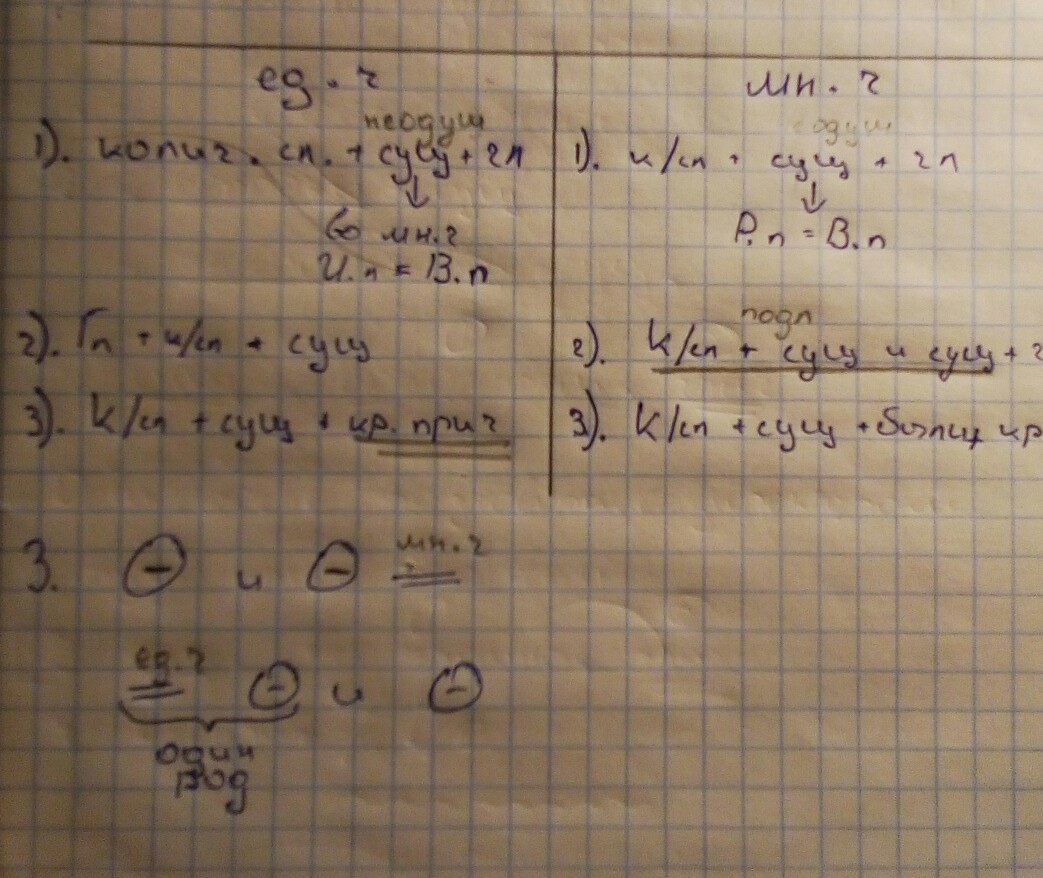 ед. ч
мн. ч
неодуш
1). колич. сл. + сущ + гл
↓
во мн.ч
И.п = В.п
одуш
1). к/сл + сущ + гл
↓
Р.п = В.п
2). Гл + к/сл + сущ
подл
2). К/сл + сущ и сущ + г
3). К/сл + сущ + кр. прич
3). К/сл + сущ + кр
3. ⊖ и ⊖ мн.ч
ед.ч
⊖ и ⊖
один
род